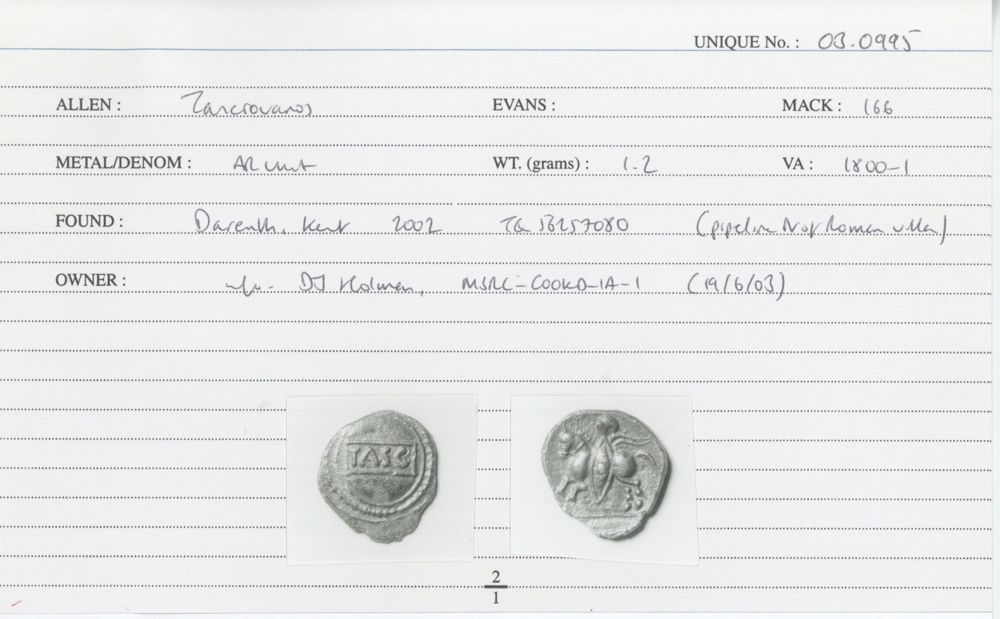 UNIQUE No. : 03.0995
ALLEN : Tasciovanos EVANS : MACK : 166
METAL/DENOM : AR unit WT. (grams) : 1.2 VA : 1800-1
FOUND : Darenth, Kent 2002 TQ 56257080 (pipeline N of Roman villa)
OWNER : DJ Holman, MSRC-COOKD-IA-1 (19/6/03)
TASC
2
1